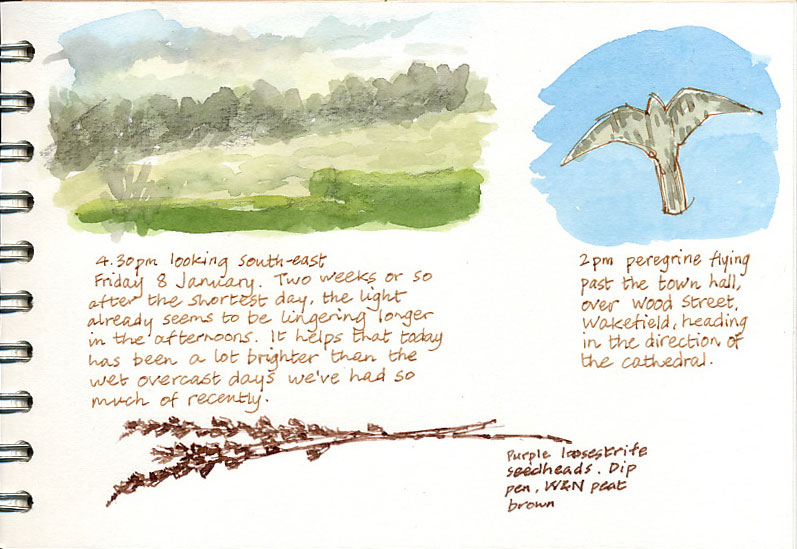 4.30pm looking south-east
Friday 8 January. Two weeks or so
after the shortest day, the light
already seems to be lingering longer
in the afternoons. It helps that today
has been a lot brighter than the
wet overcast days we've had so
much of recently.
2pm peregrine flying
past the town hall,
over Wood Street,
Wakefield, heading
in the direction of
the cathedral.
Purple loosestrife
seedheads. Dip
pen, W&N peat
brown